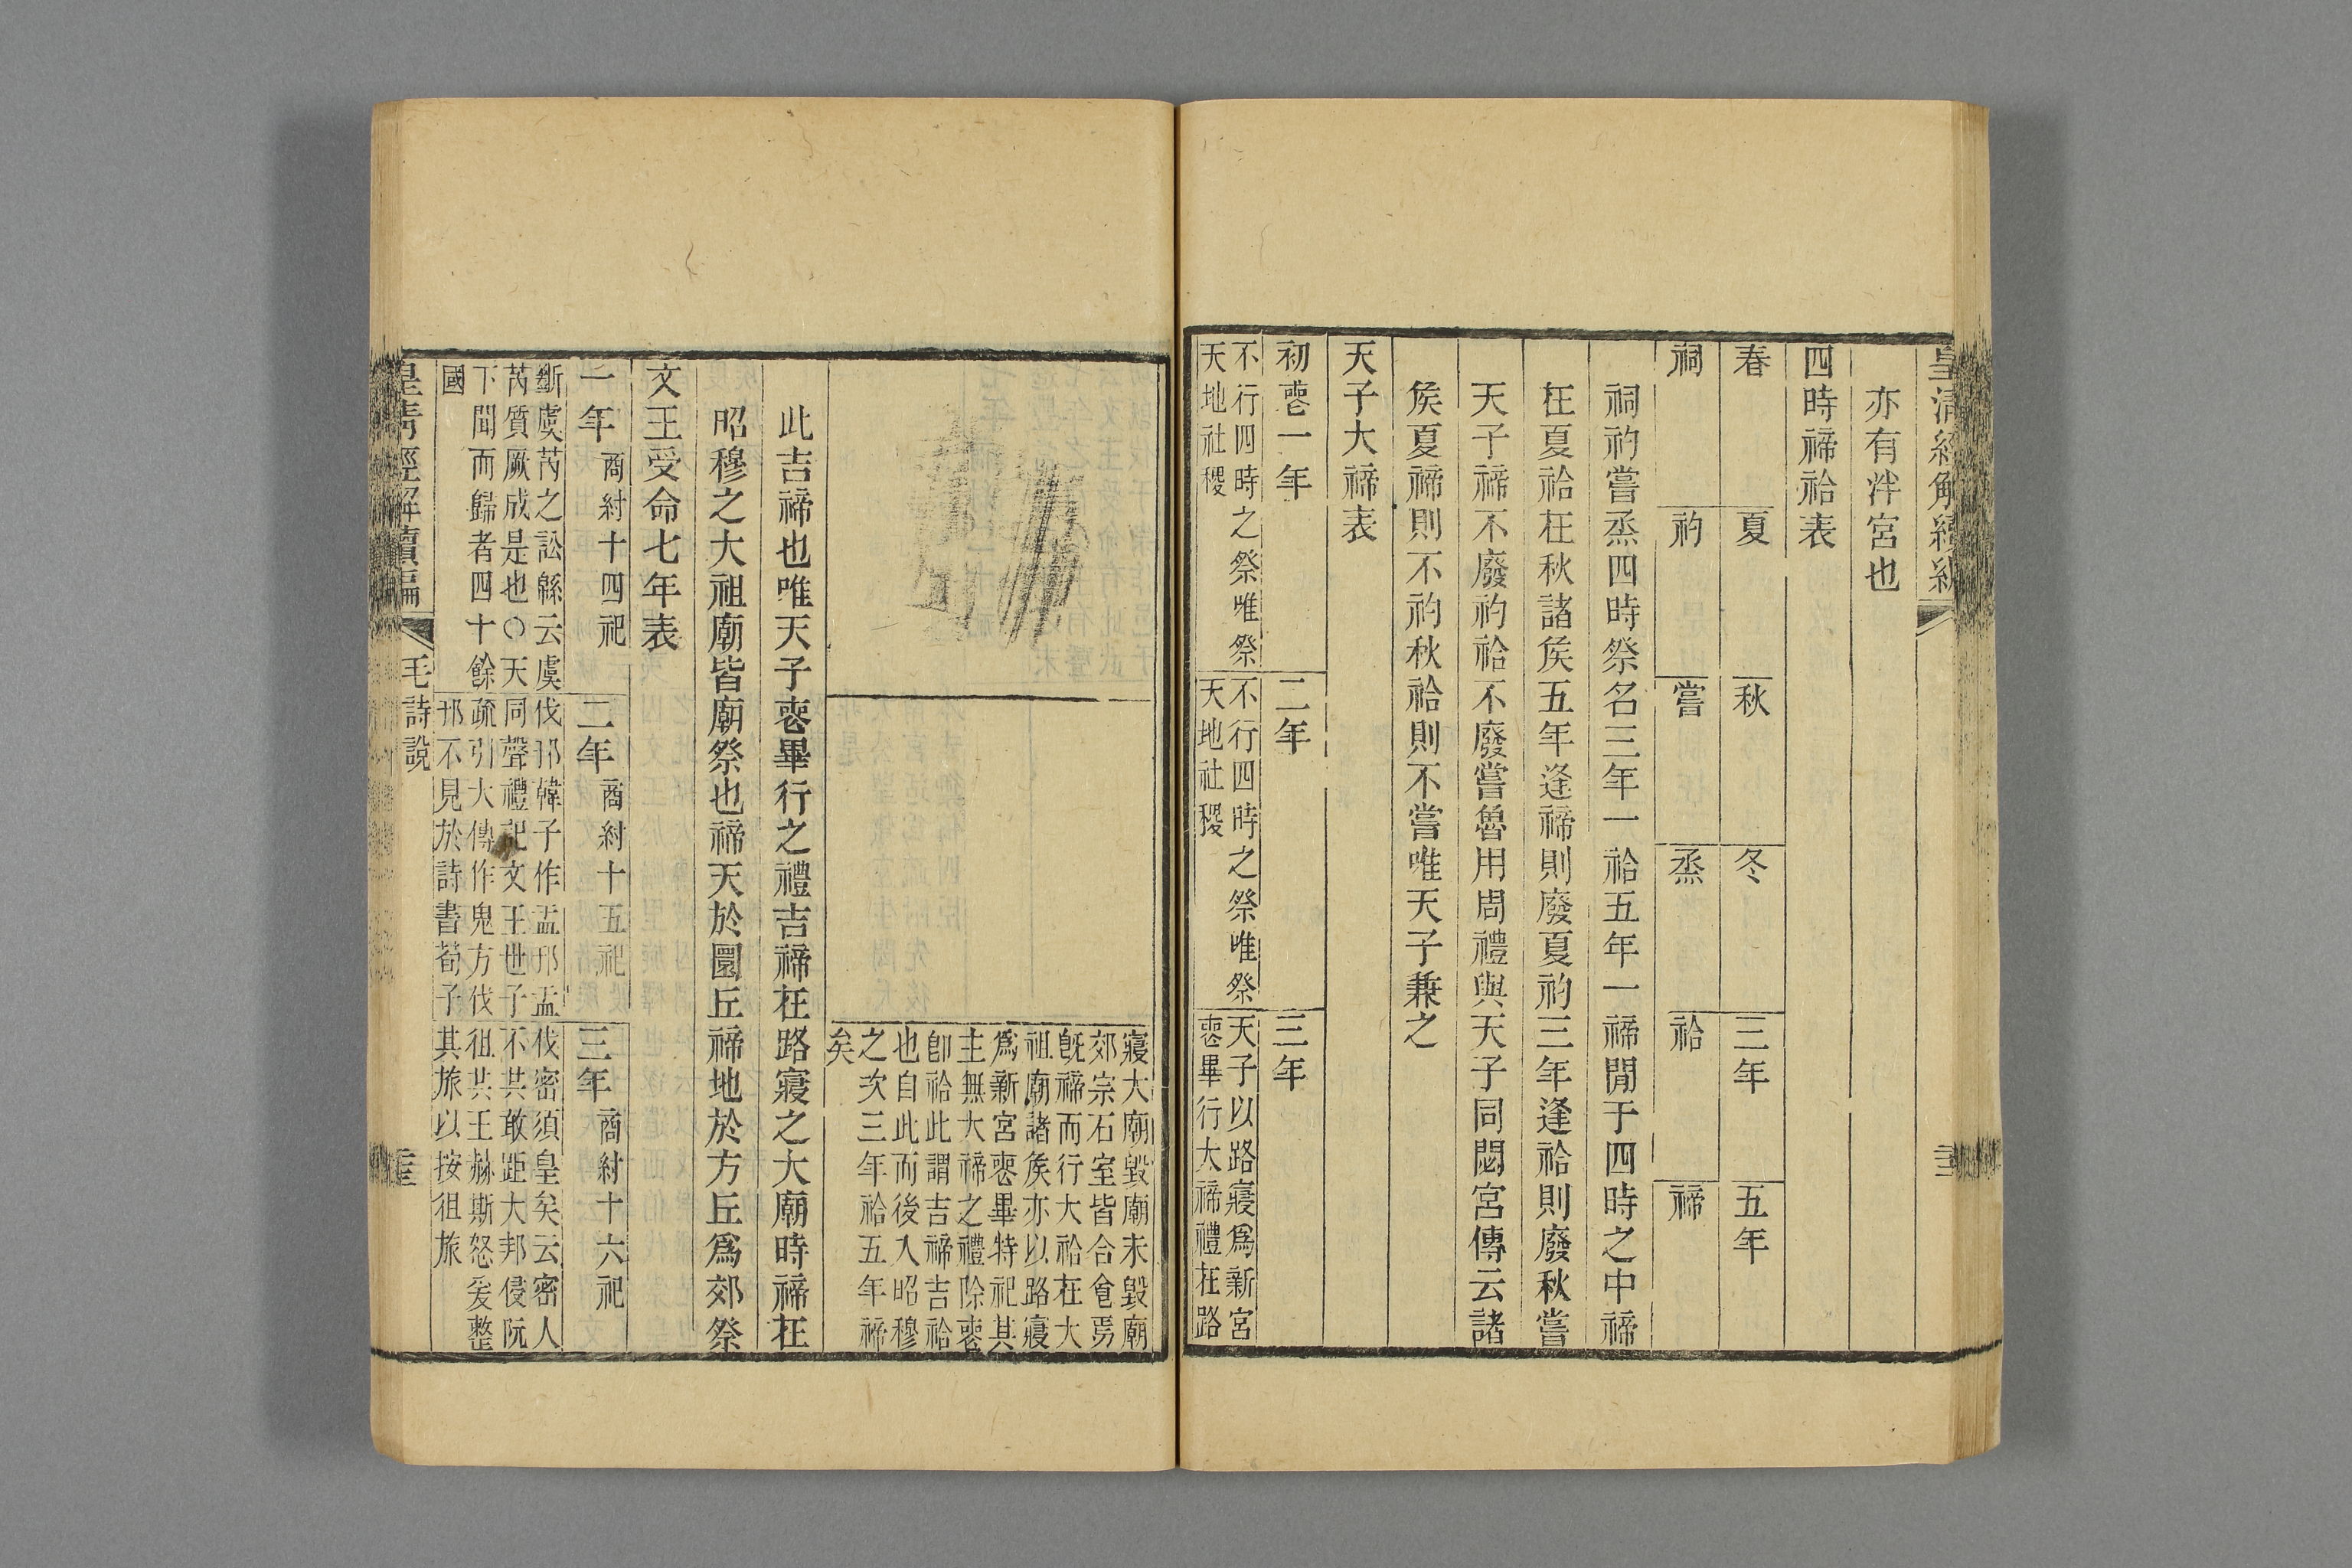 皇清經解續編
亦有泮宮也
四時禘祫表
春 夏 秋 冬 三年 五年
祠 礿 嘗 烝 祫 禘
祠礿嘗烝四時祭名三年一祫五年一禘閒于四時之中禘
在夏祫在秋諸矦五年逢禘則廢夏礿三年逢祫則廢秋嘗
天子禘不廢礿祫不廢嘗魯用周禮與天子同閟宮傳云諸
矦夏禘則不礿秋祫則不嘗唯天子兼之
天子大禘表
初喪一年 二年 三年
不行四時之祭唯祭
天地社稷
不行四時之祭唯祭
天地社稷
天子以路寢爲新宮
喪畢行大禘禮在路
寢大廟毀廟未毀廟
郊宗石室皆合食焉
旣禘而行大祫在大
祖廟諸矦亦以路寢
爲新宮喪畢特祀其
主無大禘之禮除喪
卽祫此謂吉禘吉祫
也自此而後入昭穆
之次三年祫五年禘
矣
此吉禘也唯天子喪畢行之禮吉禘在路寢之大廟時禘在
昭穆之大祖廟皆廟祭也禘天於圜丘禘地於方丘爲郊祭
文王受命七年表
一年商紂十四祀 二年商紂十五祀 三年商紂十六祀
斷虞芮之訟緜云虞
芮質厥成是也○天
下聞而歸者四十餘
國
伐邘韓子作盂邘盂
同聲禮記文王世子
疏引大傳作鬼方伐
邘不見於詩書荀子
伐密須皇矣云密人
不共敢距大邦侵阮
徂共王赫斯怒爰整
其旅以按徂旅
皇清經解續編 毛詩說